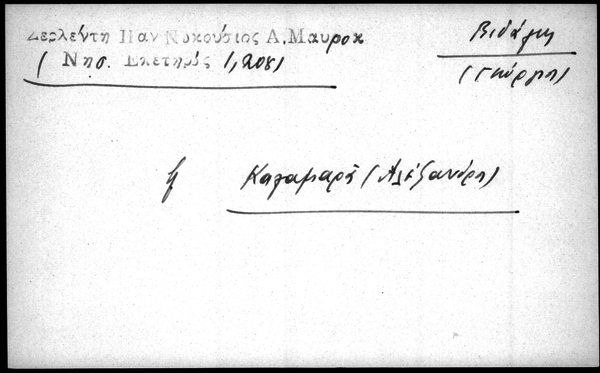 Ζερλέντη Παν Νικούσιος Α. Μαυροκ
( Νησ. Επετηρίς 1, 208)
Βιδάλη
(Γιώργη)
Καλαμαρᾶ (Αλεξανδρή)